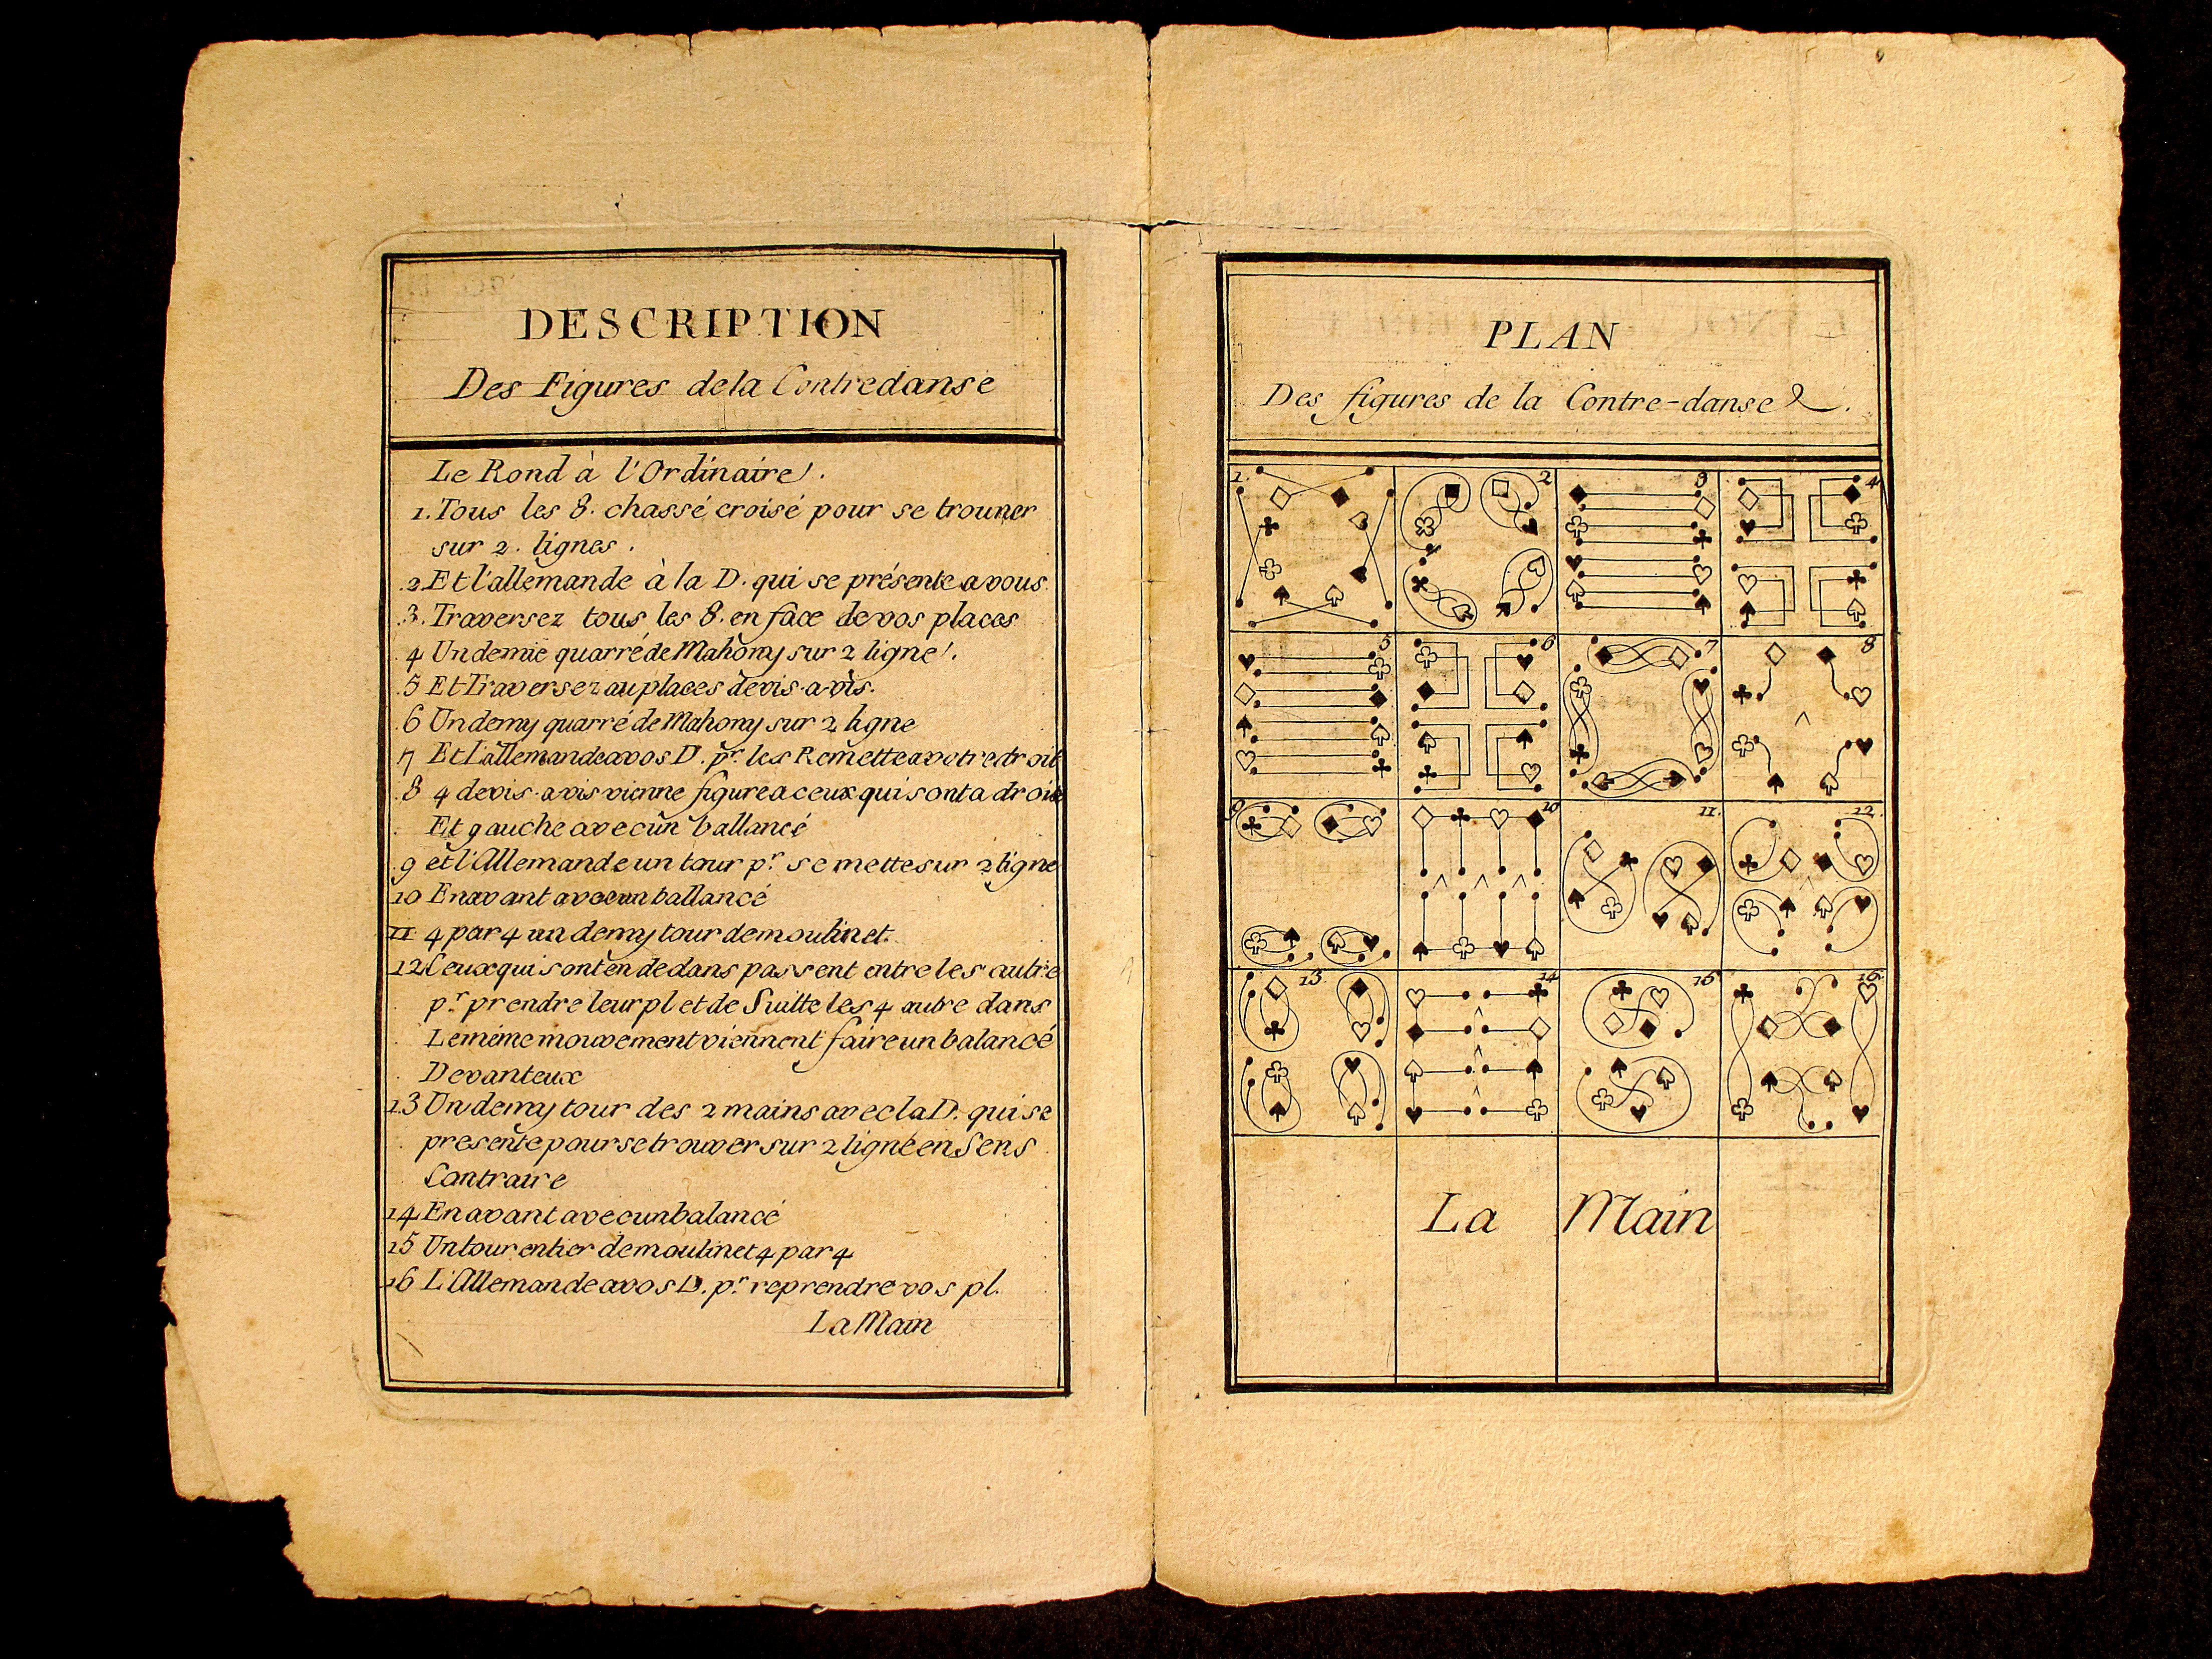 DESCRIPTION
Des Figures de la Contredanse
Le Rond à l'Ordinaire.
1. Tous les 8. chassé croisé pour se trouver
sur 2. lignes.
2. Et l'allemande à la D. qui se présente a vous
3. Traversez tous les 8. en face de vos places
4 Un demie quarré de Mahony sur 2 ligne.
5 Et Traversez au places de vis-a-vis.
6 Un demy quarré de Mahony sur 2 ligne
7 Et l'allemande a vos D. pr. les Remette a votre droit
8 4 de vis-a vis vienne figure a ceux qui sont a droite
Et gauche avec un ballancé
9 et l'Allemande un tour pr. se mette sur 2 ligne
10 En avant avec un ballancé
11 4 par 4 un demy tour de moulinet.
12 Ceux qui sont en dedans passent entre les autre
pr. prendre leur pl et de Suitte les 4 autre dans
Le même mouvement viennent faire un balancé
Devant eux
13 Un demy tour des 2 mains avec la D. qui se
presente pour se trouver sur 2 ligne en Sens
Contraire
14 En avant avec un balancé
15 Un tour entier de moulinet 4 par 4
16 L'Allemande a vos D. pr. reprendre vos pl.
La Main
PLAN
Des figures de la Contre-danse.
1. 2 3 4
5 6 7 8
9 10 11. 12.
13 14 15 16
La Main